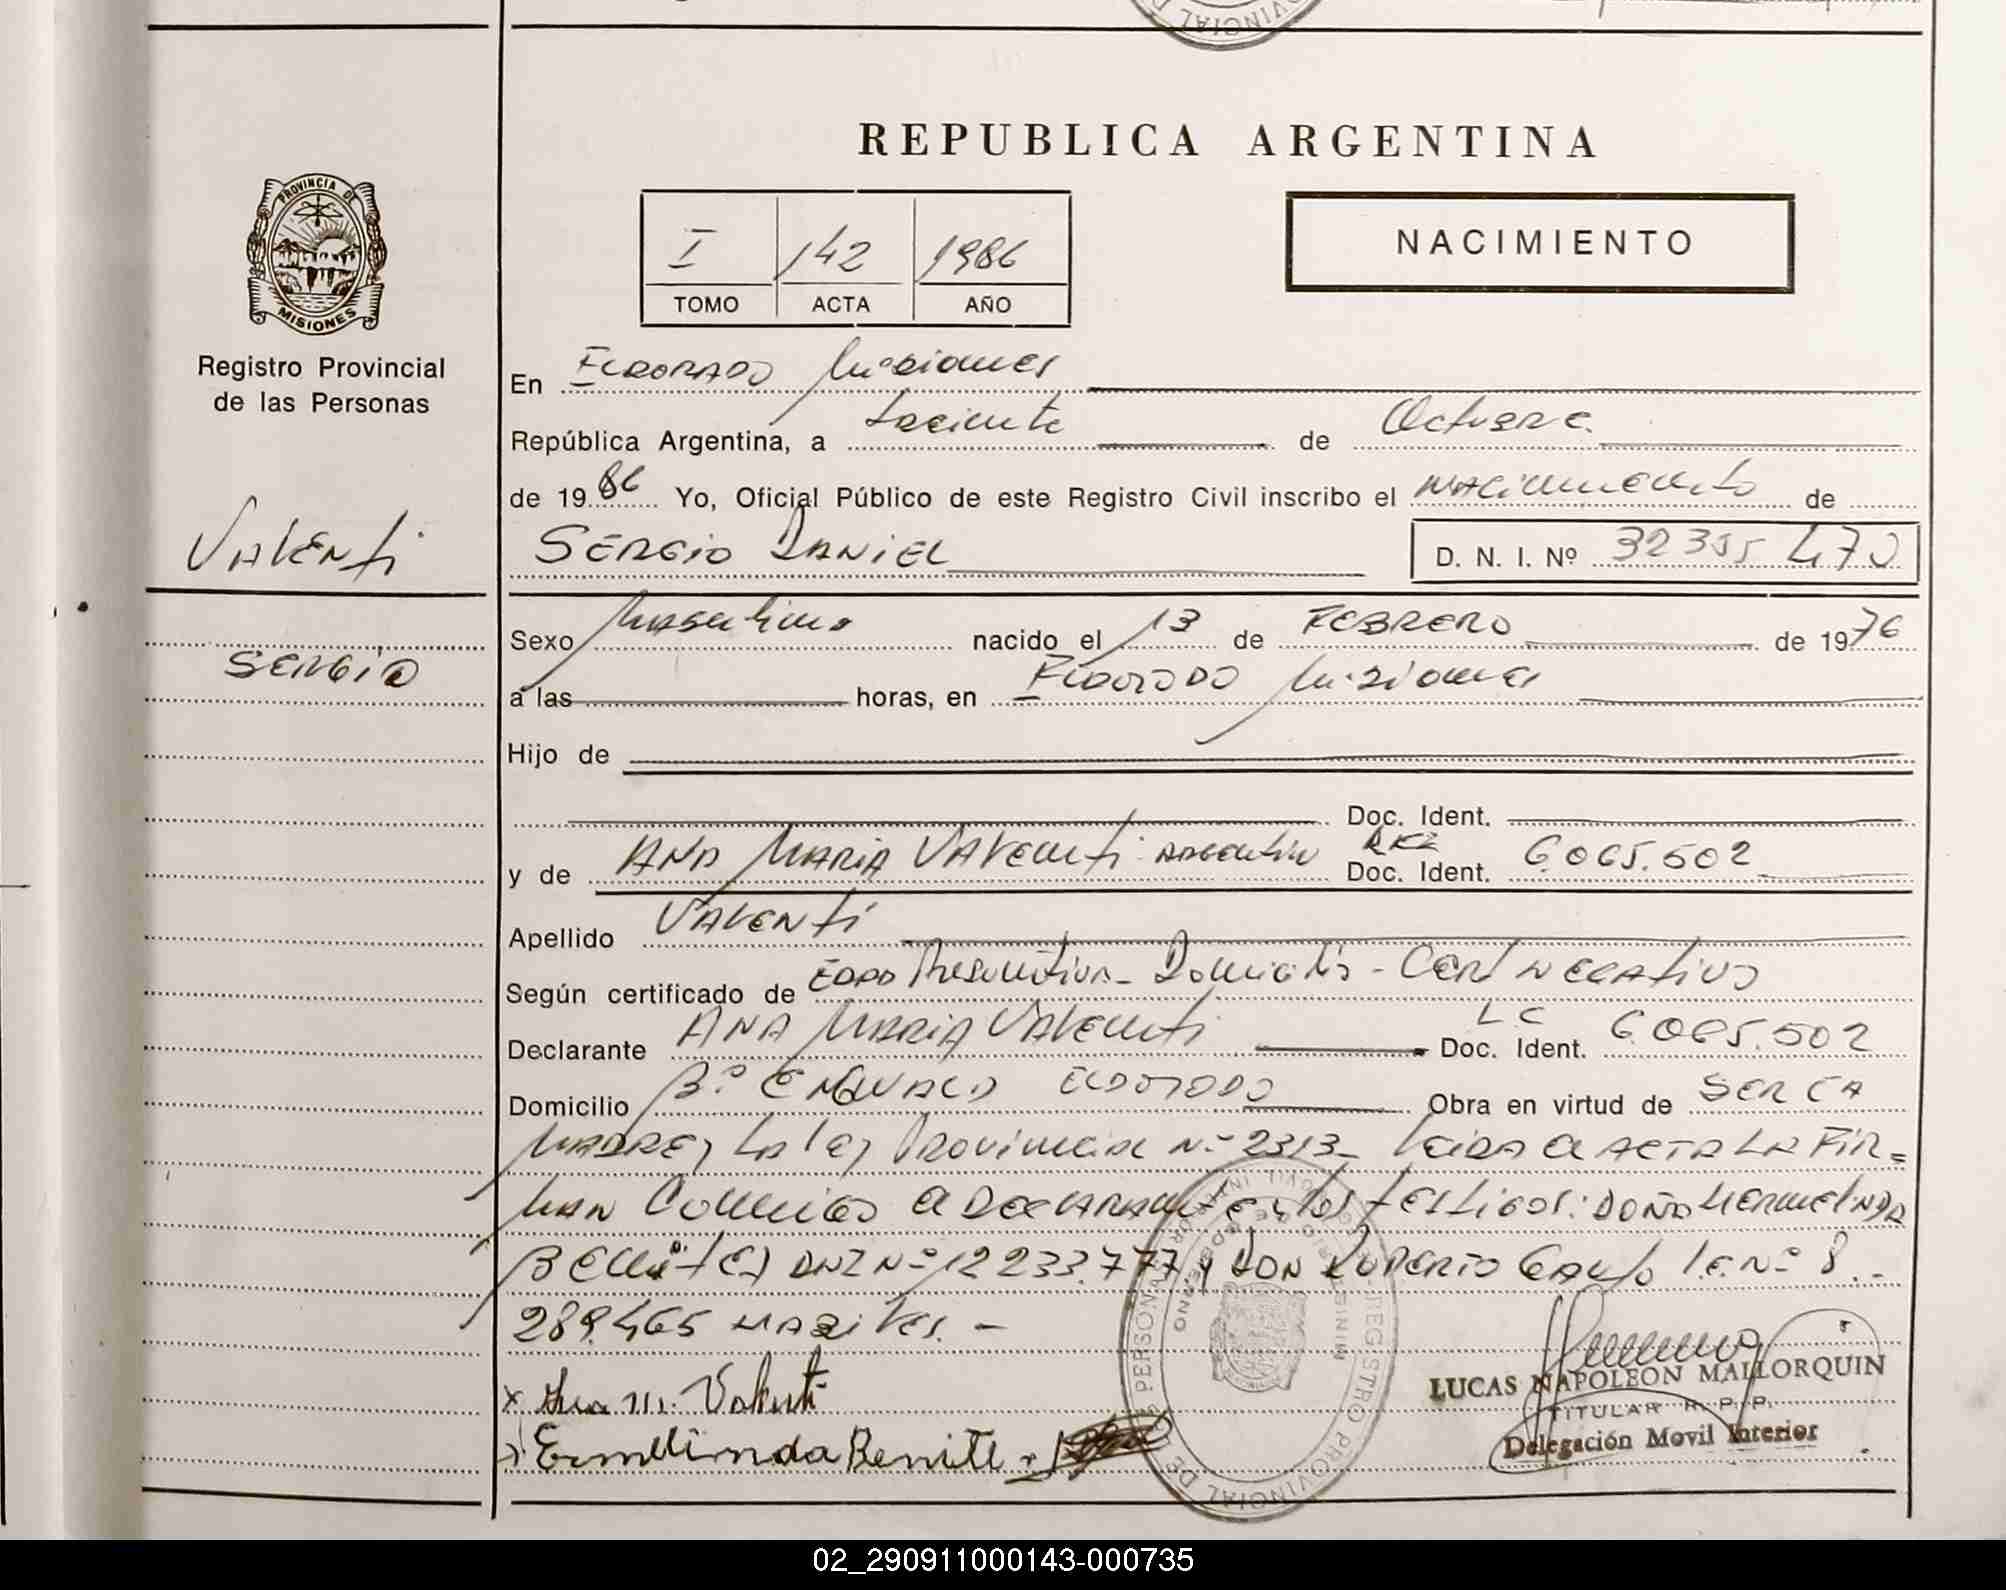 REPUBLICA ARGENTINA
PROVINCIA DE
MISIONES
Registro Provincial
de las Personas
I 142 1986
TOMO ACTA AÑO
NACIMIENTO
En Eldorado Misiones
República Argentina, a de Octubre
de 19 86 Yo, Oficial Público de este Registro Civil inscribo el nacimiento de
Valenti
Sergio Daniel D. N. I. Nº 32 355 470
Sergio
Sexo Masculino nacido el 13 de FEBRERO de 1976
a las horas, en Eldorado Misiones
Hijo de
Doc. Ident.
y de Ana Maria Valenti argentina Doc. Ident. 6.065.502
Apellido Valenti
Según certificado de Edad Presuntiva - - Cert Negativo
Declarante Ana Maria Valenti L C Doc. Ident. 6.065.502
Domicilio Bº Eldorado Obra en virtud de SER LA
MADRE y La ley Provincial Nº 2313 - Leida el ACTA LA FIR=
MAN Conmigo el DECLARANTE y los testigos: DOÑA Hermelinda
Benitez DNI Nº 12 233.777 y DON Ruperto L.E. Nº 8.-
289.465 HABILES. -
x Ana M. Valenti
Ermelinda Benite
LUCAS NAPOLEON MALLORQUIN
TITULAR R. P. P.
Delegación Movil Interior
REGISTRO PROVINCIAL DE PERSONA
02_290911000143-000735